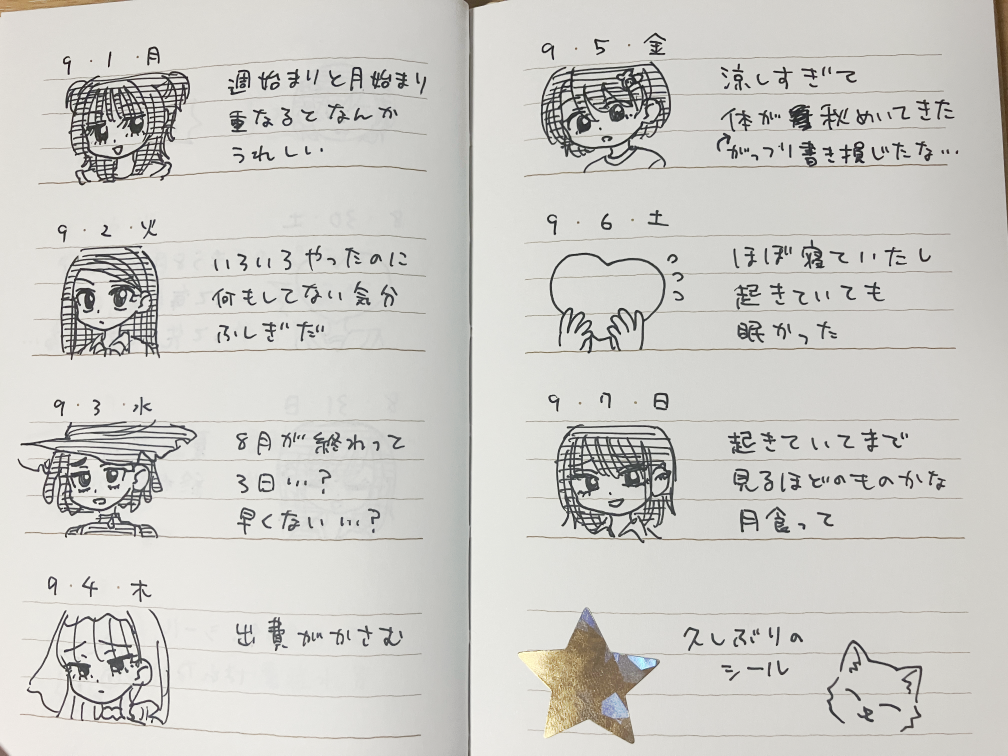 9・1・月
週始まりと月始まり
重なるとなんか
うれしい
9・2・火
いろいろやったのに
何もしてない気分
ふしぎだ
9・3・水
8月が終わって
3日…?
早くない…?
9・4・木
出費がかさむ
9・5・金
涼しすぎて
体が秋めいてきた
がっつり書き損じたな…
9・6・土
ほぼ寝ていたし
起きていても
眠かった
9・7・日
起きていてまで
見るほどのものかな
月食って
久しぶりの
シール